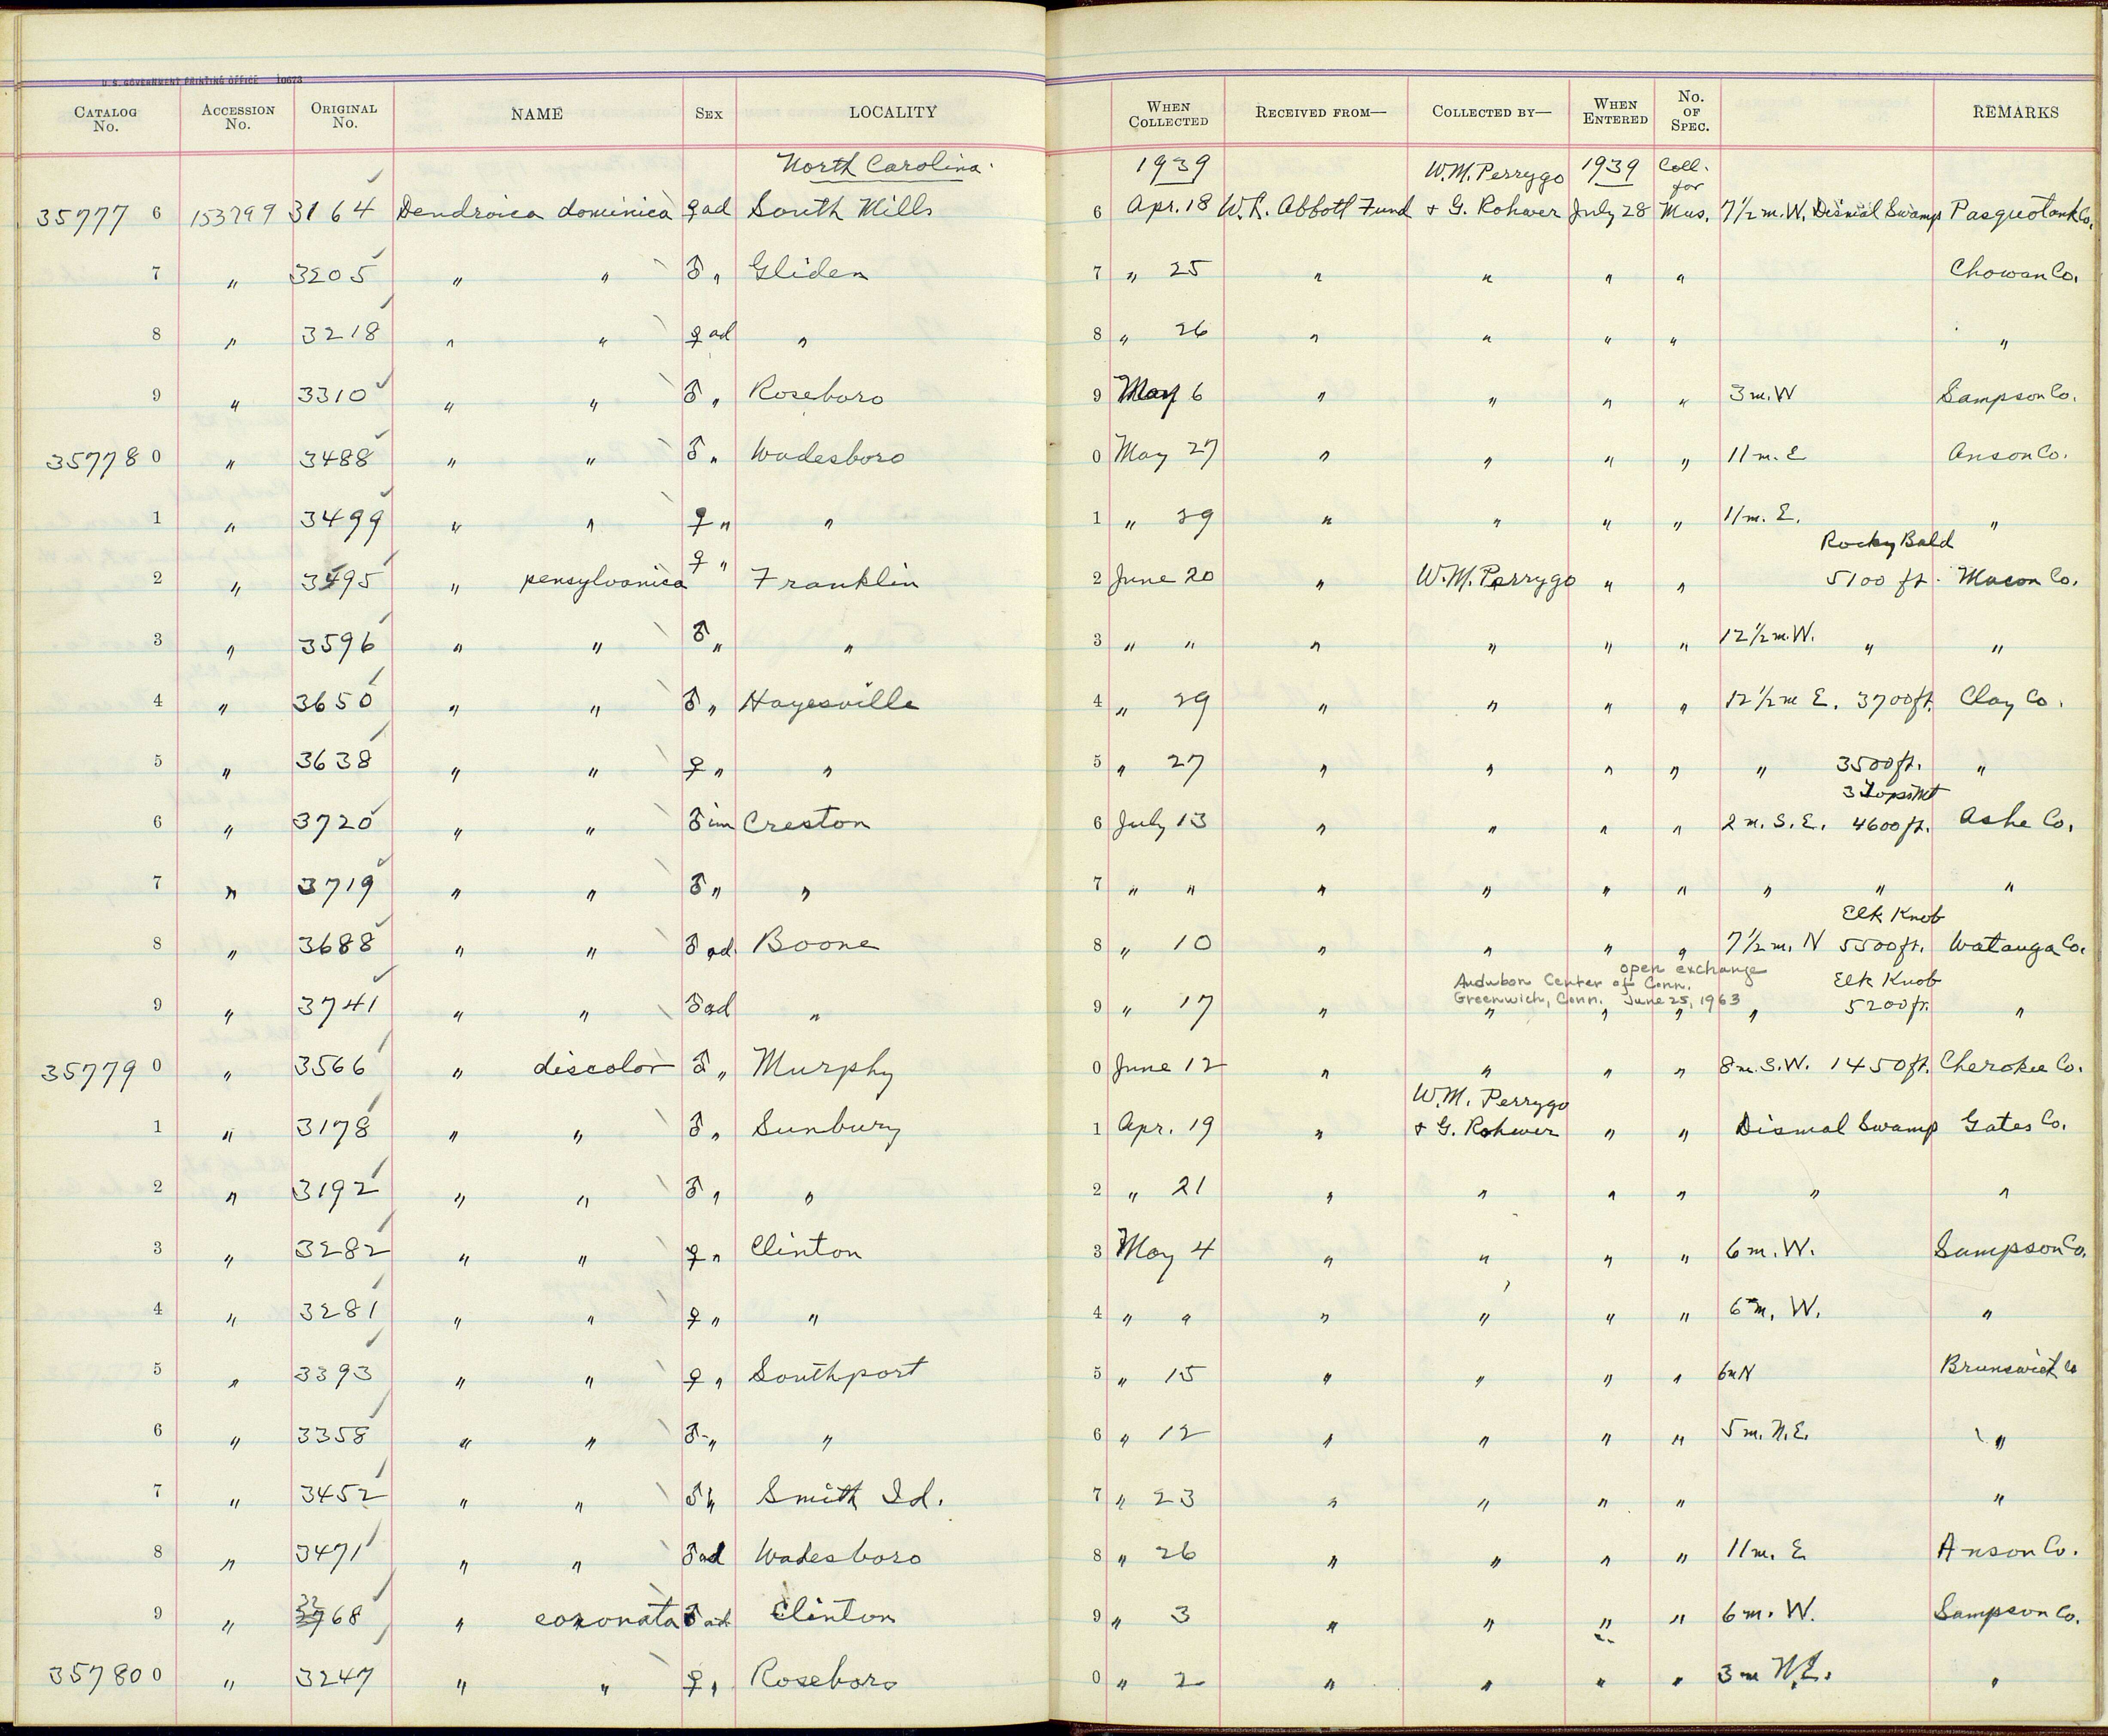 U. S. GOVERNMENT PRINTING OFFICE 10673
CATALOG No. ACCESSION No. ORIGINAL No. NAME SEX LOCALITY WHEN COLLECTED RECEIVED FROM— COLLECTED BY— WHEN ENTERED No. OF SPEC. REMARKS
North Carolina. 1939 W.M. Perrygo 1939 Coll. for
35777 6 153799 3164 Dendroica dominica ♀ ad South Mills 6 Apr. 18 W.L. Abbott Fund & G. Rohwer July 28 Mus. 7½ m. W. Dismal Swamp Pasquotank Co.
7 " 3205 " " ♂ " Gliden 7 " 25 " " " " Chowan Co.
8 " 3218 " " ♀ ad " 8 " 26 " " " " "
9 " 3310 " " ♂ " Roseboro 9 May 6 " " " " 3 m. W Sampson Co.
35778 0 " 3488 " " ♂ " Wadesboro 0 May 27 " " " " 11 m. E Anson Co.
1 " 3499 " " ♀ " " 1 " 29 " " " " 11 m. E. "
Rocky Bald
2 " 3495 " pensylvanica ♀ " Franklin 2 June 20 " W.M. Perrygo " " 5100 ft. Macon Co.
3 " 3596 " " ♂ " " 3 " " " " " " 12½ m. W. " "
4 " 3650 " " ♂ " Hayesville 4 " 29 " " " " 12½ m E. 3700 ft. Clay Co.
5 " 3638 " " ♀ " " 5 " 27 " " " " " 3500 ft. "
3 Tops Mt
6 " 3720 " " ♂ im Creston 6 July 13 " " " " 2 m. S.E. 4600 ft. Ashe Co.
7 " 3719 " " ♂ " " 7 " " " " " " " " "
Elk Knob
8 " 3688 " " ♂ ad. Boone 8 " 10 " " " " 7½ m. N 5500 ft. Watauga Co.
open exchange
Audubon Center of Conn. Elk Knob
Greenwich, Conn. June 25, 1963
9 " 3741 " " ♂ ad " 9 " 17 " " " " " 5200 ft. "
35779 0 " 3566 " discolor ♂ " Murphy 0 June 12 " " " " 8 m. S.W. 1450 ft. Cherokee Co.
W.M. Perrygo
1 " 3178 " " ♂ " Sunbury 1 Apr. 19 " & G. Rohwer " " Dismal Swamp Gates Co.
2 " 3192 " " ♂ " " 2 " 21 " " " " " "
3 " 3282 " " ♀ " Clinton 3 May 4 " " " " 6 m. W. Sampson Co.
4 " 3281 " " ♀ " " 4 " " " " " " 6 m. W. "
5 " 3393 " " ♀ " Southport 5 " 15 " " " " 6 m N Brunswick Co
6 " 3358 " " ♂ " " 6 " 12 " " " " 5 m. N.E. "
7 " 3452 " " ♂ " Smith Id. 7 " 23 " " " " "
8 " 3471 " " ♂ ad Wadesboro 8 " 26 " " " " 11 m. E Anson Co.
9 " 3268 " coronata ♂ ad Clinton 9 " 3 " " " " 6 m. W. Sampson Co.
35780 0 " 3247 " " ♀ " Roseboro 0 " 2 " " " " 3 m N.E. "